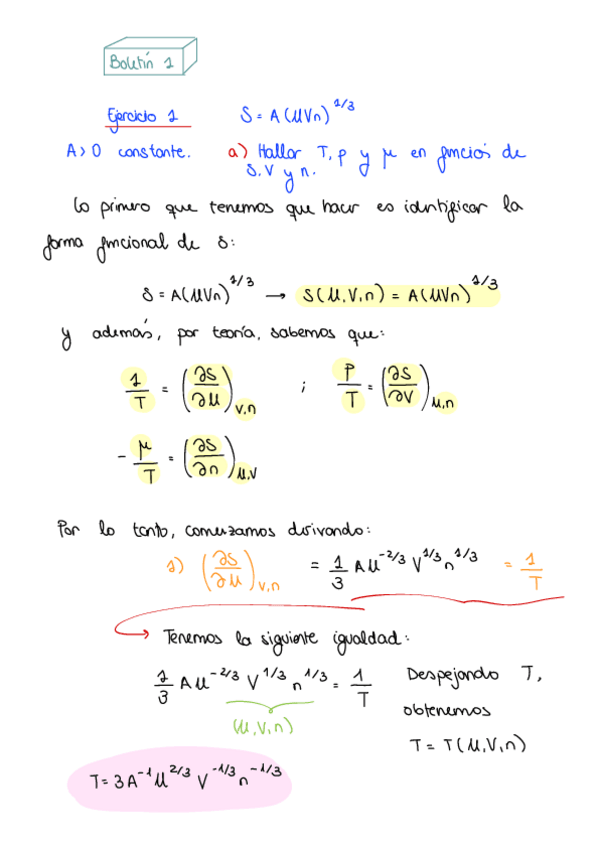 Boletín 1
Ejercicio 1 S = A(UVn)^1/3
A > 0 constante. a) Hallar T, p y μ en función de
S, V y n.
Lo primero que tenemos que hacer es identificar la
forma funcional de S:
S = A(UVn)^1/3 → S(U,V,n) = A(UVn)^1/3
y además, por teoría, sabemos que:
1/T = (∂S/∂U)_V,n ; P/T = (∂S/∂V)_U,n
- μ/T = (∂S/∂n)_U,V
Por lo tanto, comenzamos derivando:
1) (∂S/∂U)_V,n = 1/3 A U^-2/3 V^1/3 n^1/3 = 1/T
Tenemos la siguiente igualdad:
1/3 A U^-2/3 V^1/3 n^1/3 = 1/T Despejando T,
(U,V,n) obtenemos
T = T(U,V,n)
T = 3A^-1 U^2/3 V^-1/3 n^-1/3